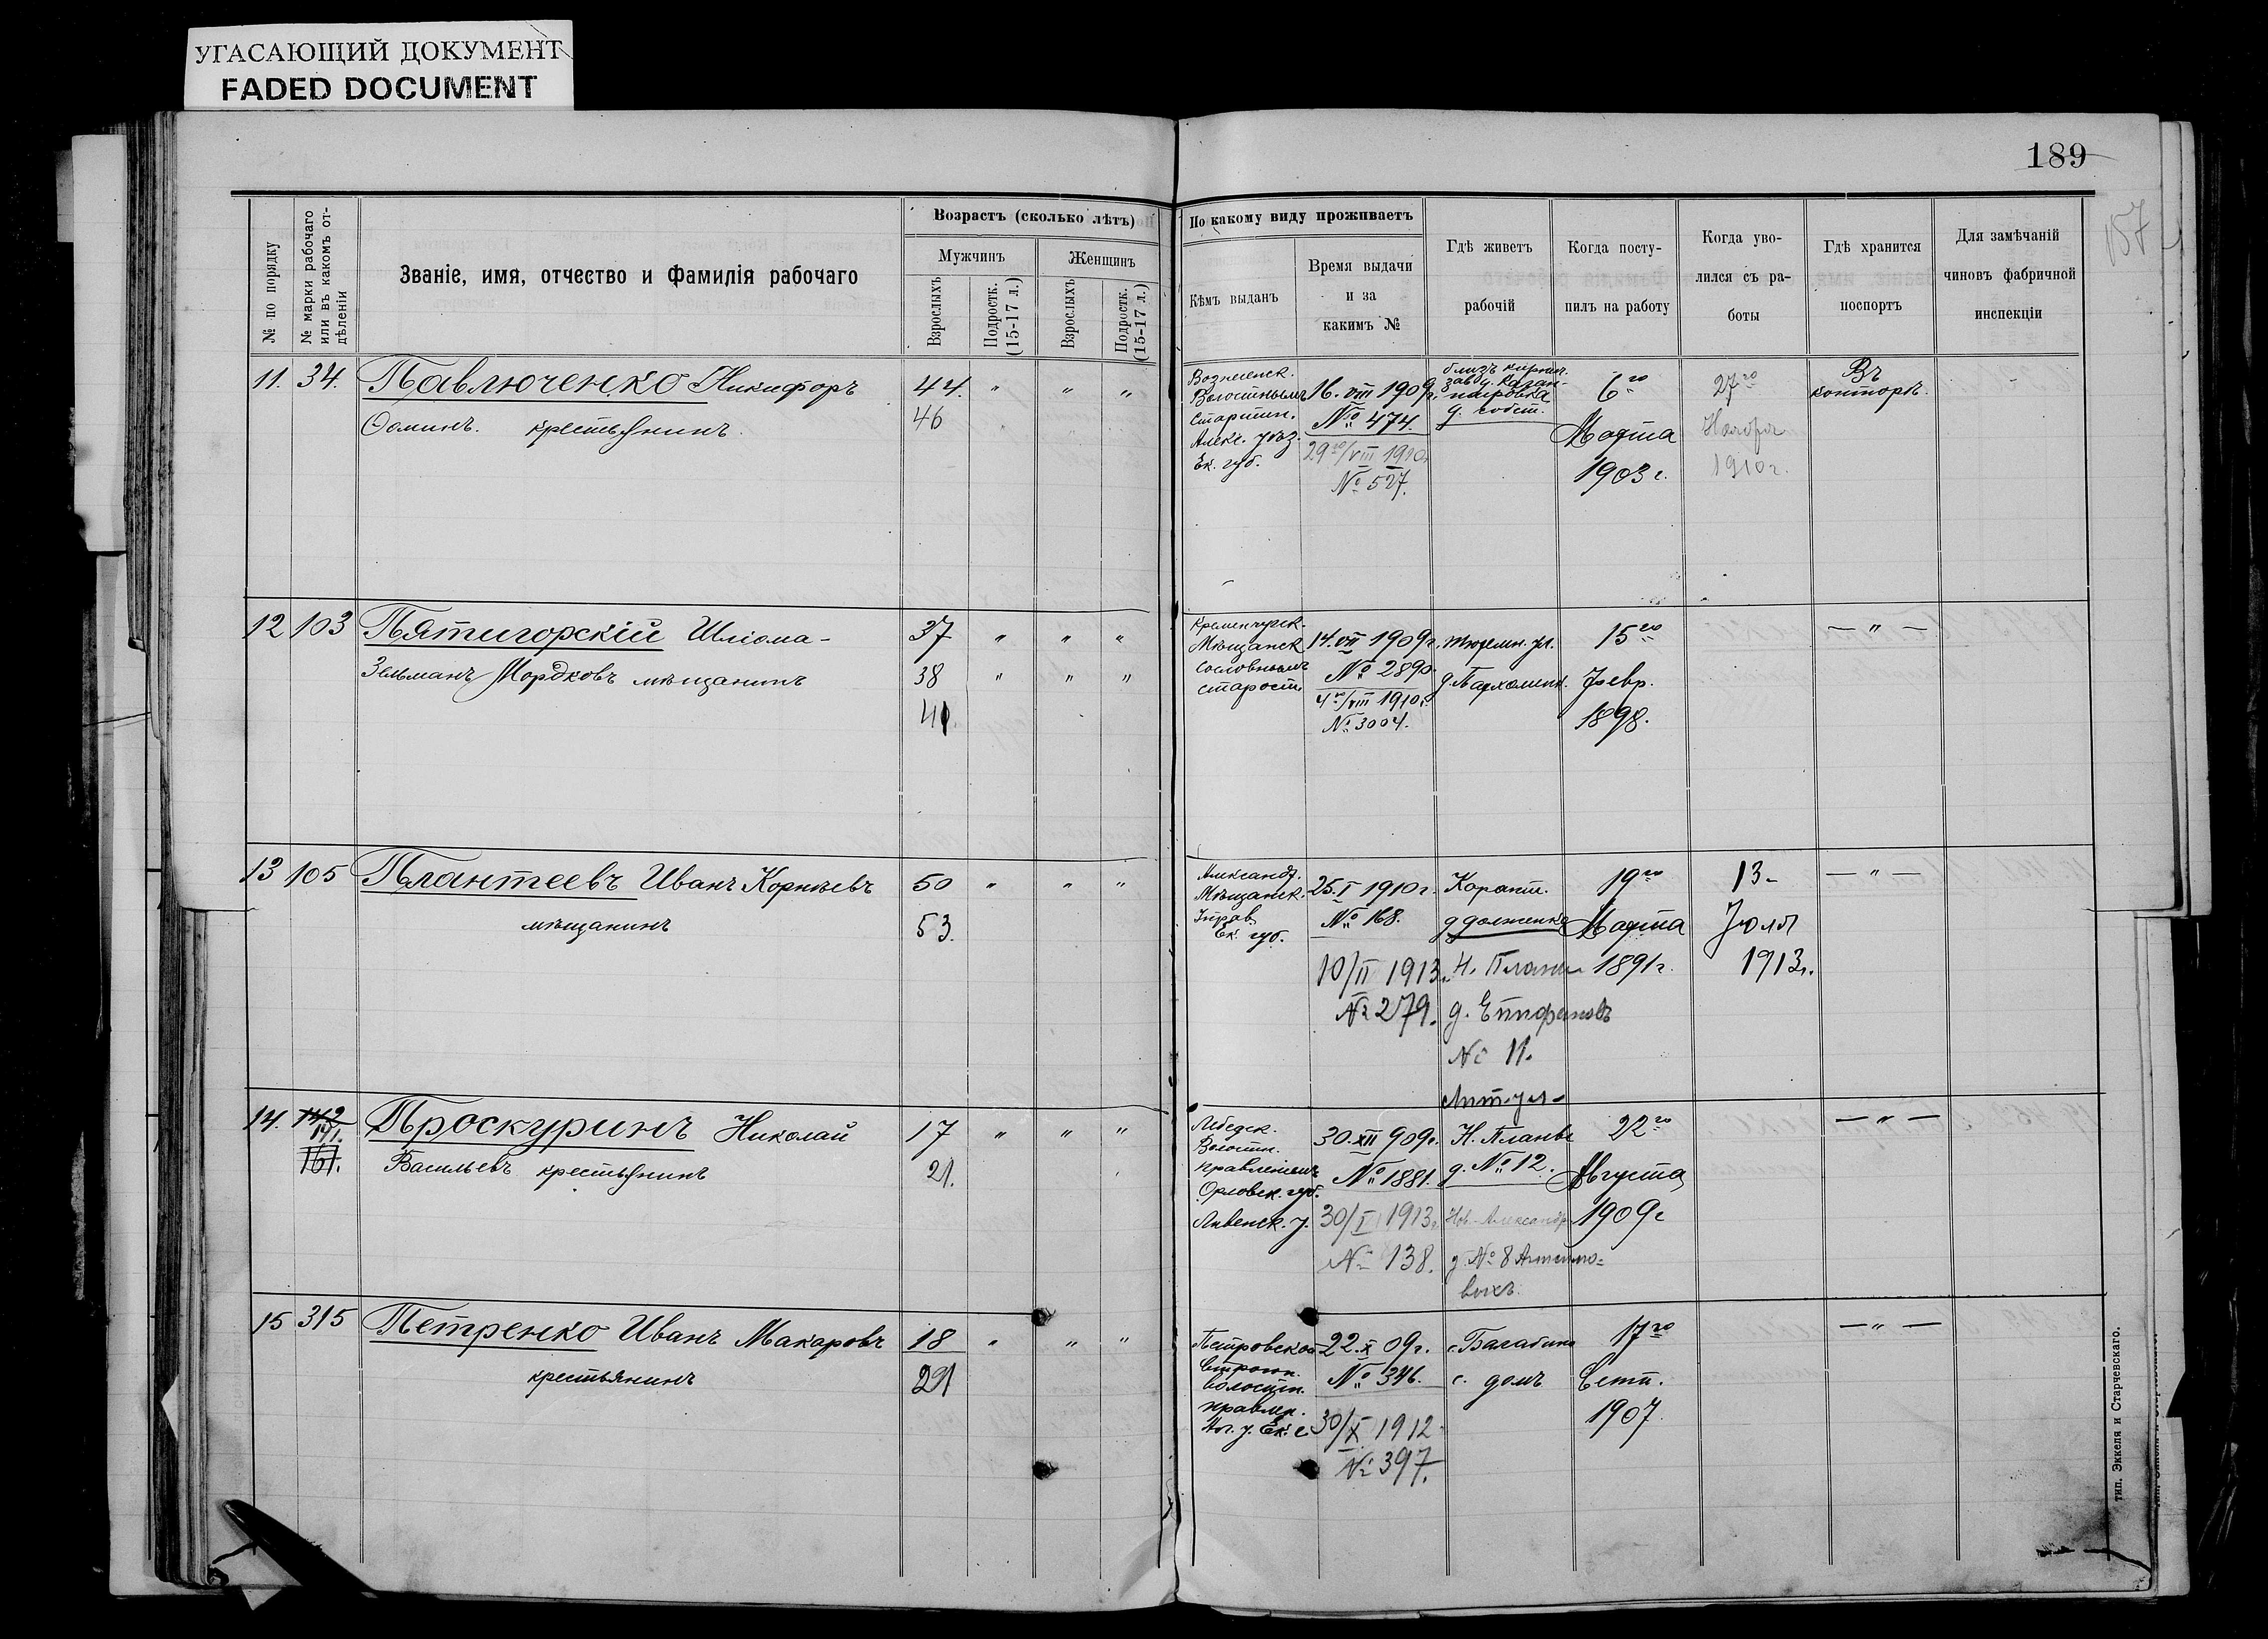 УГАСАЮЩИЙ ДОКУМЕНТ
FADED DOCUMENT
189
157
№ по порядку
№ марки рабочаго
или въ какомъ от-
дѣленіи
Званіе, имя, отчество и фамилія рабочаго
Возрастъ (сколько лѣтъ)
Мужчинъ
Женщинъ
Взрослыхъ
Подростк.
(15-17 л.)
Взрослыхъ
Подростк.
(15-17 л.)
По какому виду проживаетъ
Кѣмъ выданъ
Время выдачи
и за
какимъ №
Гдѣ живетъ
рабочій
Когда посту-
пилъ на работу
Когда уво-
лился съ ра-
боты
Гдѣ хранится
поспортъ
Для замѣчаній
чиновъ фабричной
инспекціи
11. 34. Павлюченко Никифоръ 44. " " "
Ѳоминъ. крестьянинъ. 46
Вознесенск.
Волостнымъ
Старшин.
Алекс. уѣз.
Ек. губ.
16. VIII 1909г.
№ 474.
29го/VIII 1910г.
№ 527.
близъ кирпич.
завод.
д. собст.
6го
Марта
1903 г.
27го
Ноября
1910 г.
Въ
конторѣ.
12 103 Пятигорскій Шліома- 37 " " "
Зельманъ Мордковъ мѣщанинъ 38 " " "
41.
Кременчугск.
Мѣщанск
сословнымъ
старост.
14. VII 1909г.
№ 2890.
4го/VIII 1910г.
№ 3004.
Тюремн. ул.
д. Пархоменк.
15го
Февр.
1898.
— " —
13 105 Плантеевъ Иванъ Корнѣевъ 50 " " "
мѣщанинъ 53.
Александ.
Мѣщанск.
Управ
Ек. губ.
25. I 1910 г.
№ 168.
10/II 1913г.
№ 279.
Карант.
д Долженко
Н. Планъ
д. Епифановъ
№ 11.
19го
Марта
1891 г.
13-
Юля
1913г.
— " —
14. 142 Проскуринъ Николай 17 " " "
191.
161. Васильевъ крестьянинъ 21.
Лебедск.
Волостн.
правленіемъ
Орловск. губ.
Ливенск. у.
30. XII 909г.
№ 1881.
30/I 1913г.
№ 138.
Н. Планъ
д. № 12.
Нов-Александр
д. № 8
22го
Августа
1909 г
— " —
15 315 Петренко Иванъ Макаровъ 18 " " "
крестьянинъ 21
Петровское
волостн.
правлен.
22. X 09г.
№ 346.
30/X 1912
№ 397.
с. Балабино
с. домъ
17го
Сент.
1907.
— " —
тип. Эккеля и Старчевскаго.